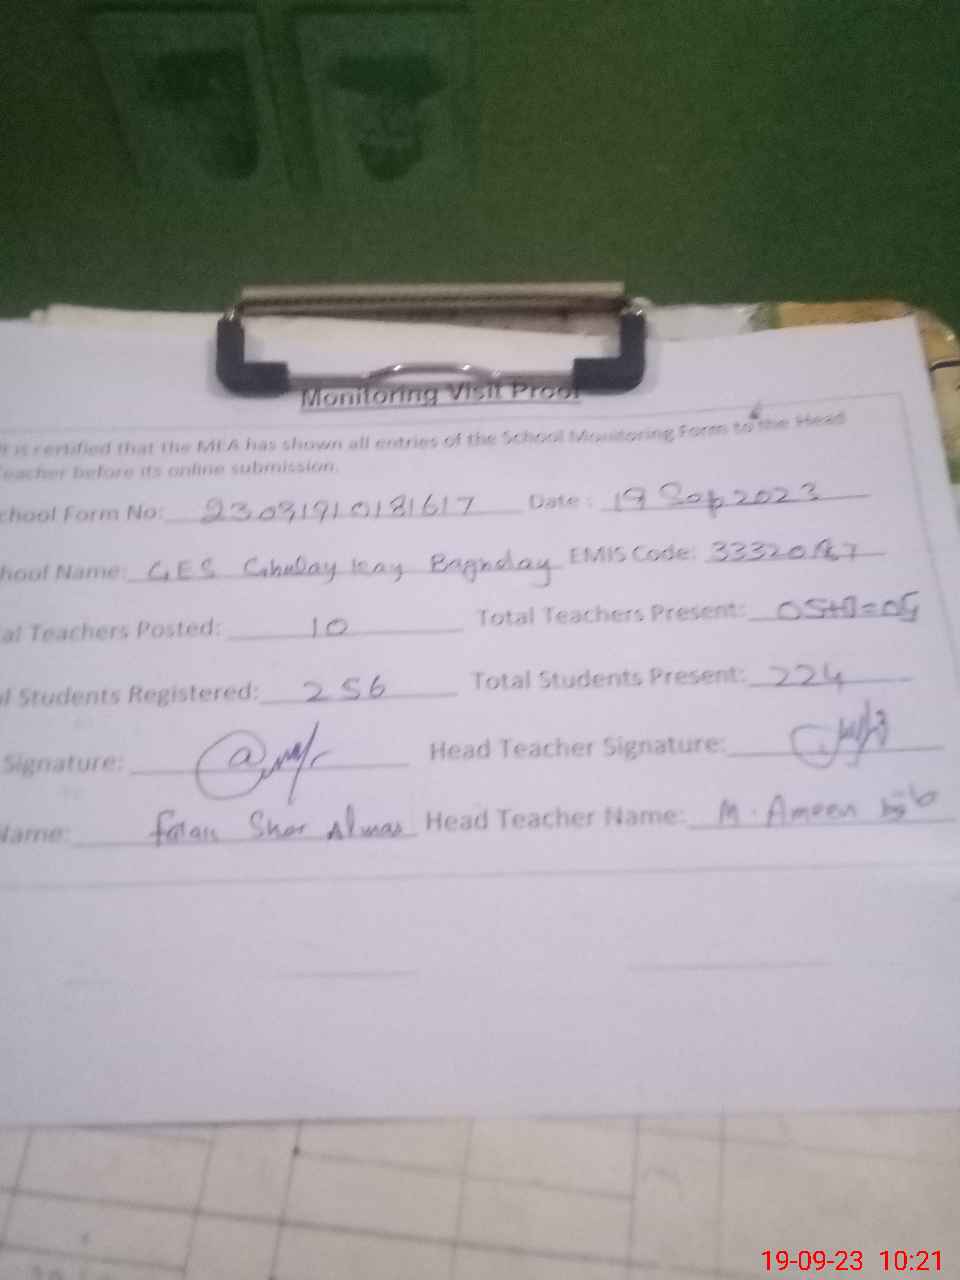 Monitoring Visit Proof
It is certified that the MEA has shown all entries of the School Monitoring Form to the Head
Teacher before its online submission.
chool Form No: 23091910181617 Date: 19 Sep 2023
hool Name: GES Ghulay Kay Baghday EMIS Code:
al Teachers Posted: 10 Total Teachers Present:
l Students Registered: 256 Total Students Present: 224
Signature: Head Teacher Signature:
Name: Sher Almas Head Teacher Name: M. Ameen
19-09-23 10:21